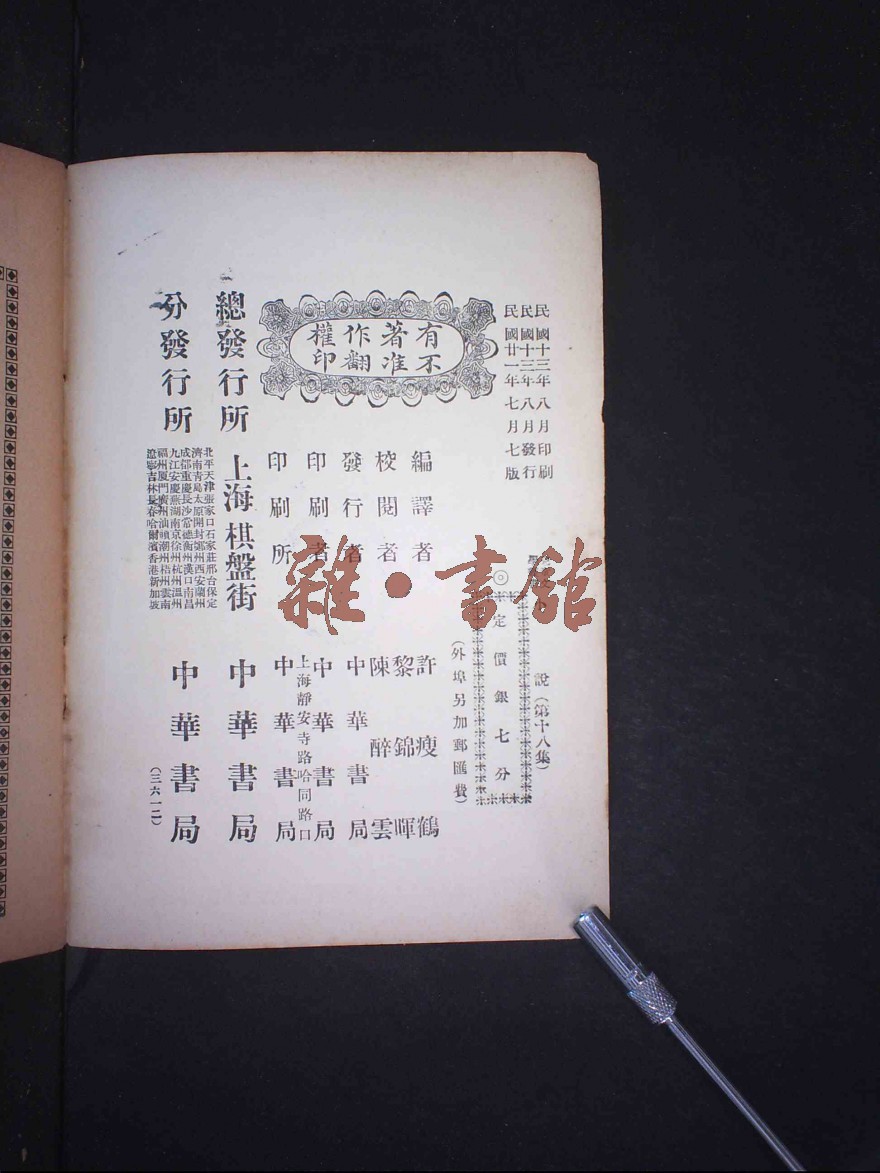 民國十三年八月印刷
民國十三年八月發行
民國廿一年七月七版
說(第十八集)
◎定價銀七分
(外埠另加郵匯費)
有著作權
不准翻印
編譯者 許瘦鶴
校閱者 黎錦暉
陳醉雲
發行者 中華書局
印刷者 中華書局
上海靜安寺路哈同路口
印刷所 中華書局
總發行所 上海棋盤街 中華書局
分發行所 中華書局
北平天津張家口石家莊邢台保定
濟南青島太原開封鄭州西安蘭州
成都重慶長沙常德衡州漢口南昌
九江安慶蕪湖南京徐州杭州溫州
福州廈門廣州汕頭潮州梧州雲南
遼寧吉林長春哈爾濱香港新加坡
(三六一二)
雜·書館